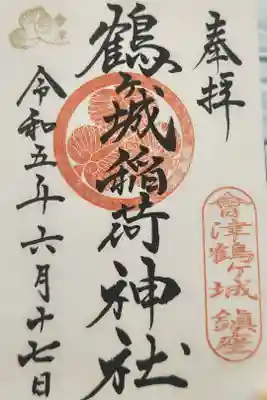 奉拝
會津鶴ヶ城 鎮座
鶴ヶ城稲荷神社
令和五年六月十七日